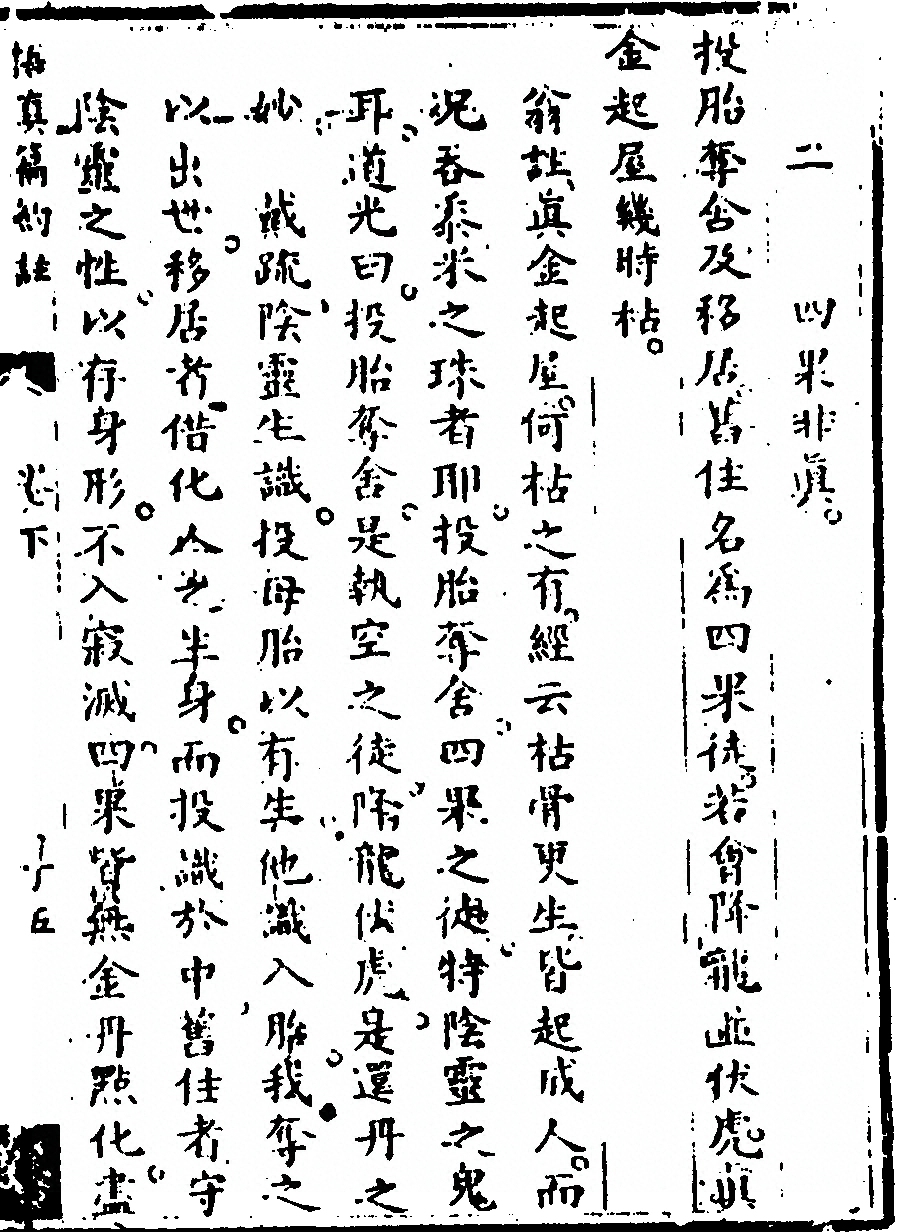 二　四果非眞
投胎奪舍及移居舊住名爲四果徒若會降龍並伏虎眞
金起屋幾時枯
翁註眞金起屋何枯之有經云枯骨更生皆起成人而
况吞黍米之珠者耶投胎奪舍四果之徒特陰靈之鬼
耳道光曰投胎奪舍是執空之徒降龍伏虎是還丹之
妙　戴疏陰靈生識投母胎以有生他識入胎我奪之
以出世移居者借化人半身而投識於中舊住者守
陰靈之性以存身形不入寂滅四果皆無金丹點化盡
悟眞篇約註　卷下